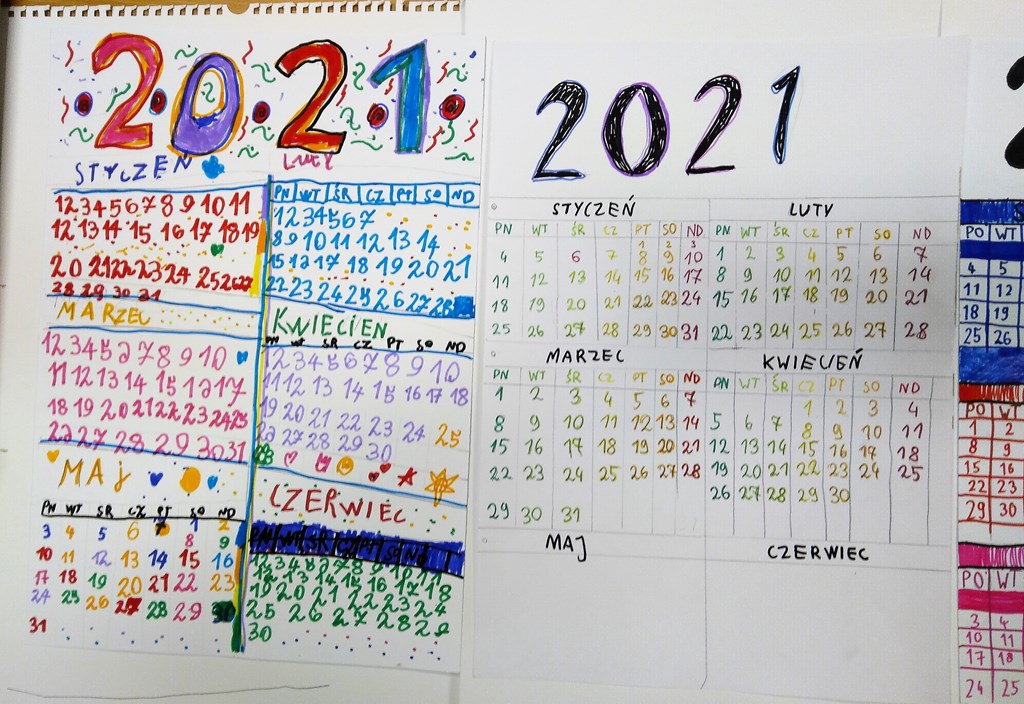 2021
STYCZEŃ
1 2 3 4 5 6 7 8 9 10 11
12 13 14 15 16 17 18 19
20 21 22 23 24 25 26 27
28 29 30 31
LUTY
PN WT ŚR CZ PT SO ND
1 2 3 4 5 6 7
8 9 10 11 12 13 14
15 16 17 18 19 20 21
22 23 24 25 26 27 28
MARZEC
1 2 3 4 5 6 7 8 9 10
11 12 13 14 15 16 17
18 19 20 21 22 23 24 25
26 27 28 29 30 31
KWIECIEŃ
PN WT ŚR CZ PT SO ND
1 2 3 4 5 6 7 8 9 10
11 12 13 14 15 16 17 18
19 20 21 22 23 24 25
26 27 28 29 30
MAJ
PN WT ŚR CZ PT SO ND
1 2
3 4 5 6 7 8 9
10 11 12 13 14 15 16
17 18 19 20 21 22 23
24 25 26 27 28 29 30
31
CZERWIEC
PN WT ŚR CZ PT SO ND
1 2 3 4 5 6 7 8 9 10 11
12 13 14 15 16 17 18
19 20 21 22 23 24
25 26 27 28 29
30
2021
STYCZEŃ
PN WT ŚR CZ PT SO ND
1 2 3
4 5 6 7 8 9 10
11 12 13 14 15 16 17
18 19 20 21 22 23 24
25 26 27 28 29 30 31
LUTY
PN WT ŚR CZ PT SO ND
1 2 3 4 5 6 7
8 9 10 11 12 13 14
15 16 17 18 19 20 21
22 23 24 25 26 27 28
MARZEC
PN WT ŚR CZ PT SO ND
1 2 3 4 5 6 7
8 9 10 11 12 13 14
15 16 17 18 19 20 21
22 23 24 25 26 27 28
29 30 31
KWIECEŃ
PN WT ŚR CZ PT SO ND
1 2 3 4
5 6 7 8 9 10 11
12 13 14 15 16 17 18
19 20 21 22 23 24 25
26 27 28 29 30
MAJ
CZERWIEC
PO WT
4 5
11 12
18 19
25 26
PO WT
1 2
8 9
15 16
22 23
29 30
PO WT
3 4
10 11
17 18
24 25